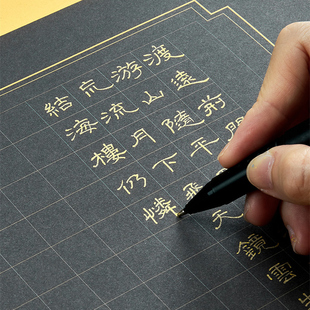 渡遠荊門
游山隨平
荒流月下飛天鏡雲
結海樓仍憐